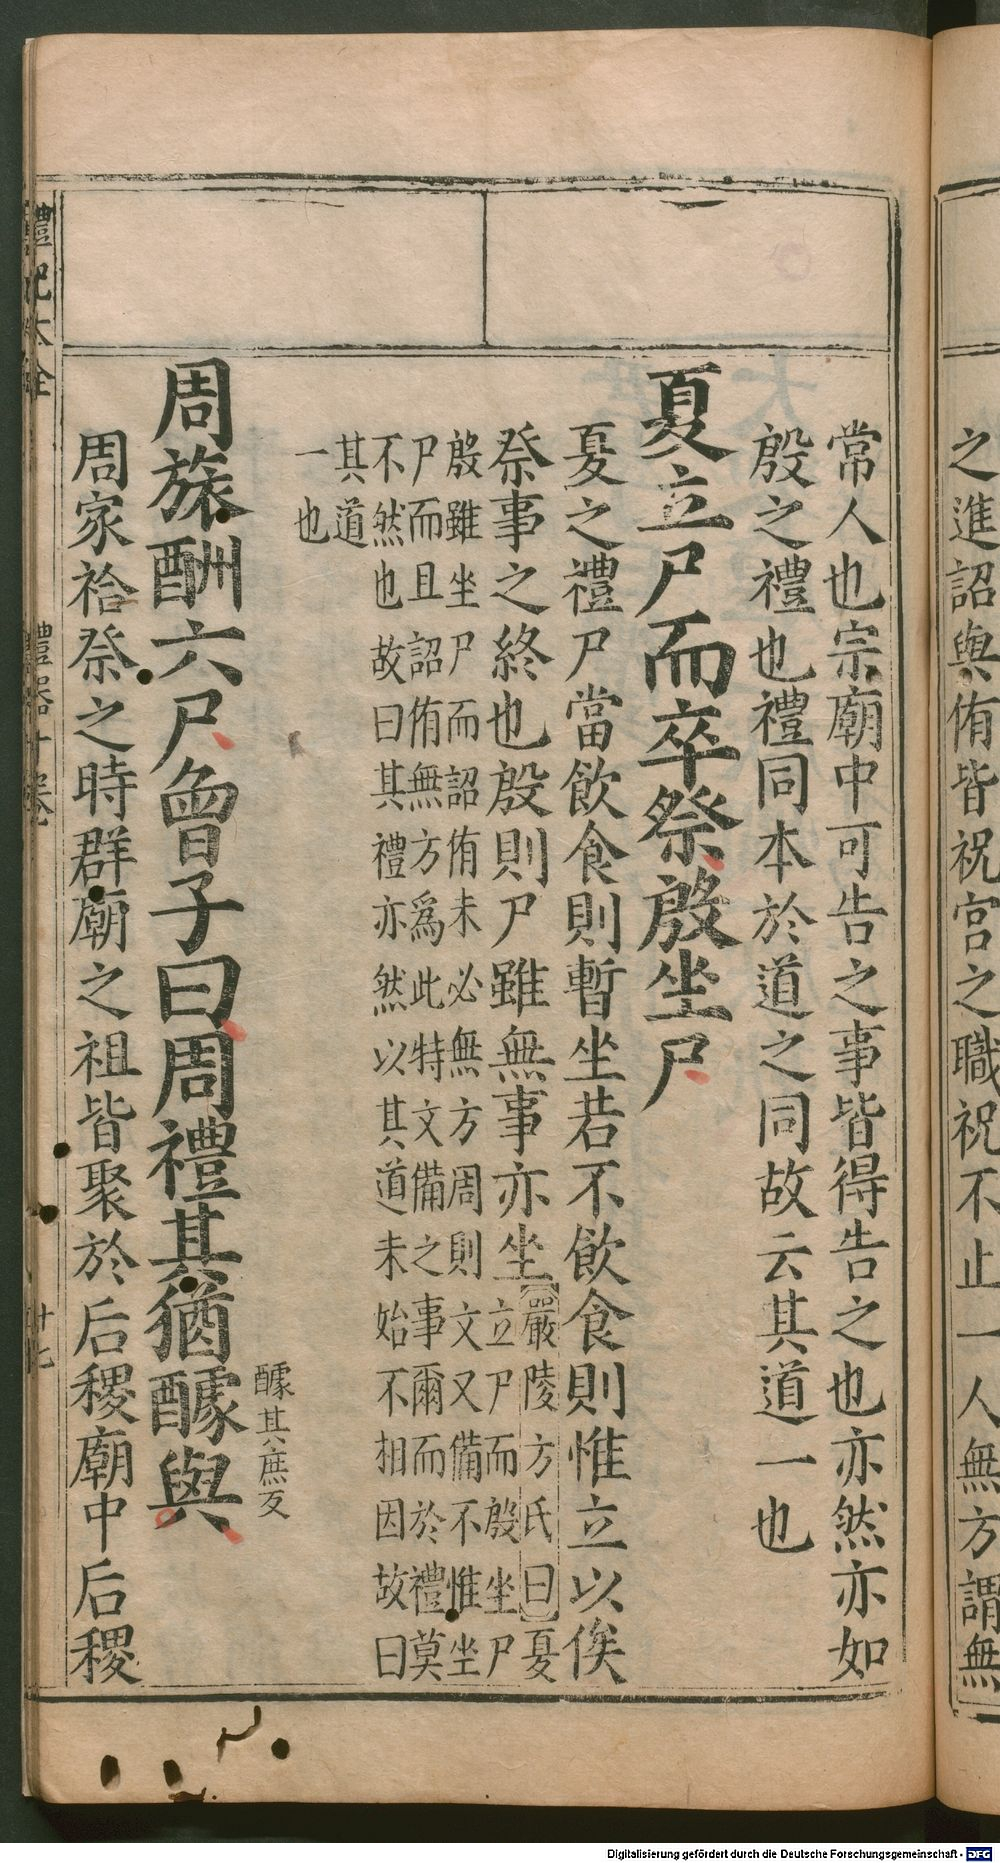 之進詔與侑皆祝宮之職祝不止一人無方謂無
常人也宗廟中可告之事皆得告之也亦然亦如
殷之禮也禮同本於道之同故云其道一也
夏立尸而卒祭殷坐尸
夏之禮尸當飲食則暫坐若不飲食則惟立以俟
祭事之終也殷則尸雖無事亦坐
嚴陵方氏曰夏
立尸而殷坐尸
殷雖坐尸而詔侑未必無方周則文又備不惟坐
尸而且詔侑無方爲此特文備之事爾而於禮莫
不然也故曰其禮亦然以其道未始不相因故曰
其道
一也
周旅酬六尸曾子曰周禮其猶醵與
醵其庶反
周家祫祭之時群廟之祖皆聚於后稷廟中后稷
禮記大全
禮器十卷
十七
Digitalisierung gefördert durch die Deutsche Forschungsgemeinschaft - DFG